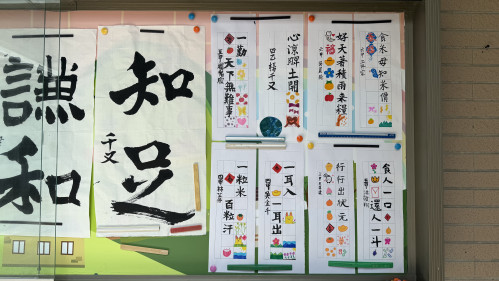 食米毋知米價
好天著積雨來糧
心涼脾土開
四乙楊千又
一勤天下無難事
食人一口還人一斗
行行出狀元
一耳入一耳出
一粒米百粒汗
知足
千又
謙和